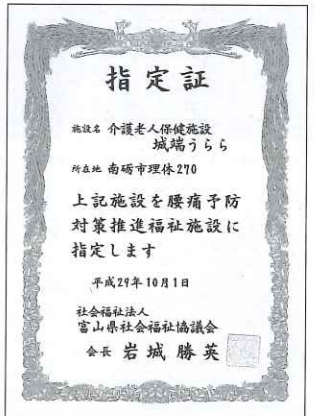 指定証
施設名 介護老人保健施設
城端うらら
所在地 南砺市理休270
上記施設を腰痛予防
対策推進福祉施設に
指定します
平成29年10月1日
社会福祉法人
富山県社会福祉協議会
会長 岩城勝英